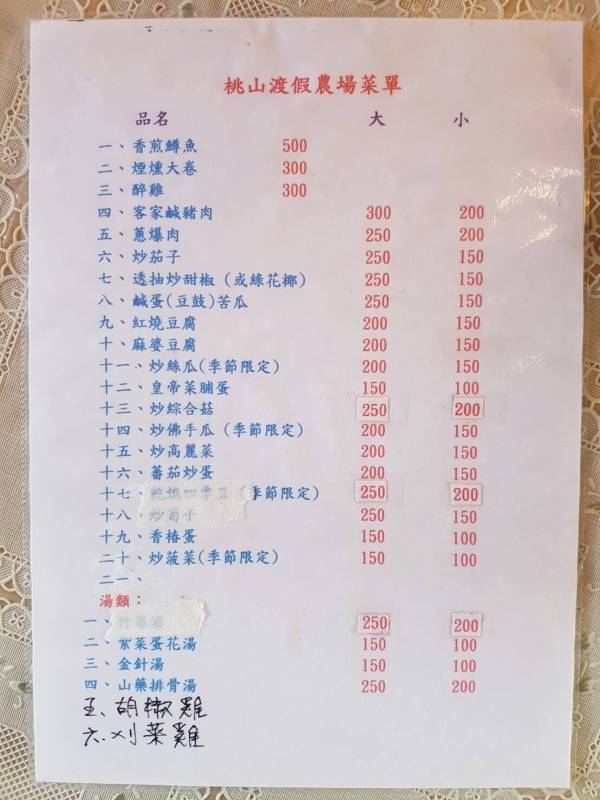 桃山渡假農場菜單
品名 大 小
一、香煎鱒魚 500
二、煙燻大卷 300
三、醉雞 300
四、客家鹹豬肉 300 200
五、蔥爆肉 250 200
六、炒茄子 250 150
七、透抽炒甜椒(或綠花椰) 250 150
八、鹹蛋(豆鼓)苦瓜 250 150
九、紅燒豆腐 200 150
十、麻婆豆腐 200 150
十一、炒絲瓜(季節限定) 200 150
十二、皇帝菜脯蛋 150 100
十三、炒綜合菇 250 200
十四、炒佛手瓜(季節限定) 200 150
十五、炒高麗菜 200 150
十六、蕃茄炒蛋 200 150
十七、乾煸四季豆(季節限定) 250 200
十八、炒筍子 250 150
十九、香椿蛋 150 100
二十、炒菠菜(季節限定) 150 100
二一、
湯類：
一、竹 湯 250 200
二、紫菜蛋花湯 150 100
三、金針湯 150 100
四、山藥排骨湯 250 200
五、胡椒雞
六、刈菜雞